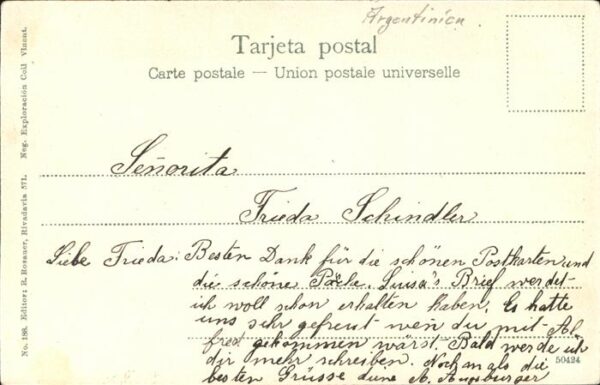 Argentinien
Tarjeta postal
Carte postale — Union postale universelle
No. 186. Editor: R. Rosauer, Rivadavia 571. Neg. Exploración Coll Vinent.
Señorita
Frieda Schindler
Liebe Frieda: Besten Dank für die schönen Postkarten und
die schöne Luisa's Brief werdet
ich woll schon erhalten haben. Es hatte
uns sehr gefreut wen du mit Al
fred gekommen wärst. Bald werde ich
dir mehr schreiben. Nochmals die
besten Grüsse deine A. Augsburger
50424